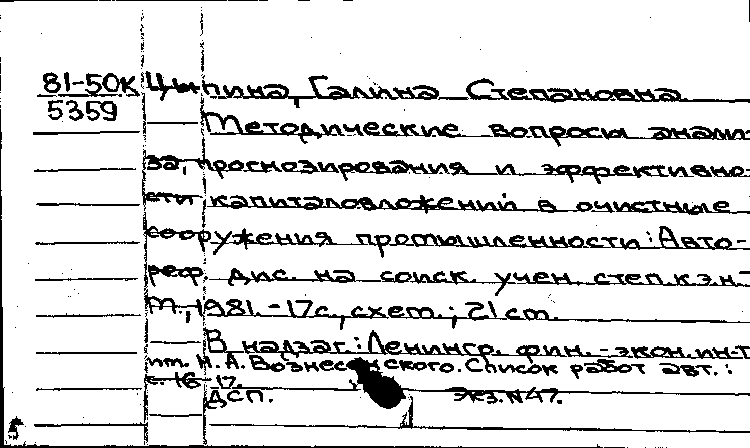 81-50к Цыпина, Галина Степановна
5359
Методические вопросы анали-
за, прогнозирования и эффективно-
сти капиталовложений в очистные
сооружения промышленности: Авто-
реф. дис. на соиск. учен. степ. к.э.н.-
1981.-17с., схем.; 21 см.
В надзаг.: Ленингр. фин.-экон. ин-т
им. Н. А. Вознесенского. Список работ авт.:
с. 16-17.
ДСП. Экз. N47.